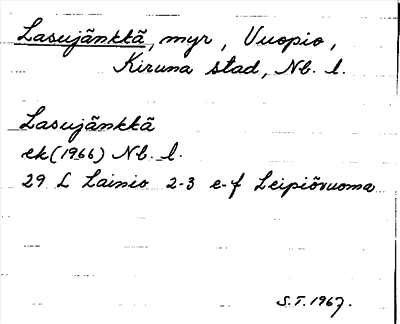 Lasujänkkä, myr, Vuopio,
Kiruna stad, Nb. l.
Lasujänkkä
ek (1966) Nb. l.
29 L Lainio 2-3 e-f Leipiövuoma
S.T. 1967.